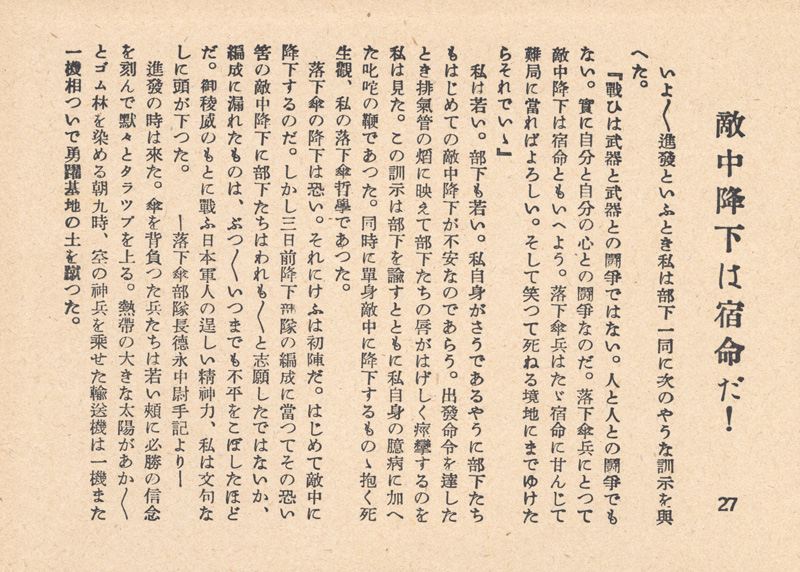 敵中降下は宿命だ!
27
いよ〱進發といふとき私は部下一同に次のやうな訓示を與
へた。
『戰ひは武器と武器との鬪爭ではない。人と人との鬪爭でも
ない。實に自分と自分の心との鬪爭なのだ。落下傘兵にとつて
敵中降下は宿命ともいへよう。落下傘兵はたゞ宿命に甘んじて
難局に當ればよろしい。そして笑つて死ねる境地にまでゆけた
らそれでいゝ』
私は若い。部下も若い。私自身がさうであるやうに部下たち
もはじめての敵中降下が不安なのであらう。出發命令を達した
とき排氣管の焰に映えて部下たちの唇がはげしく痙攣するのを
私は見た。この訓示は部下を諭すとともに私自身の臆病に加へ
た叱咤の鞭であつた。同時に單身敵中に降下するものゝ抱く死
生觀、私の落下傘哲學であつた。
落下傘の降下は恐い。それにけふは初陣だ。はじめて敵中に
降下するのだ。しかし三日前降下部隊の編成に當つてその恐い
筈の敵中降下に部下たちはわれも〱と志願したではないか、
編成に漏れたものは、ぶつ〱いつまでも不平をこぼしたほど
だ。御稜威のもとに戰ふ日本軍人の逞しい精神力、私は文句な
しに頭が下つた。　―落下傘部隊長德永中尉手記より―
進發の時は來た。傘を背負つた兵たちは若い頰に必勝の信念
を刻んで默々とタラツプを上る。熱帶の大きな太陽があか〱
とゴム林を染める朝九時、空の神兵を乘せた輸送機は一機また
一機相ついで勇躍基地の土を蹴つた。